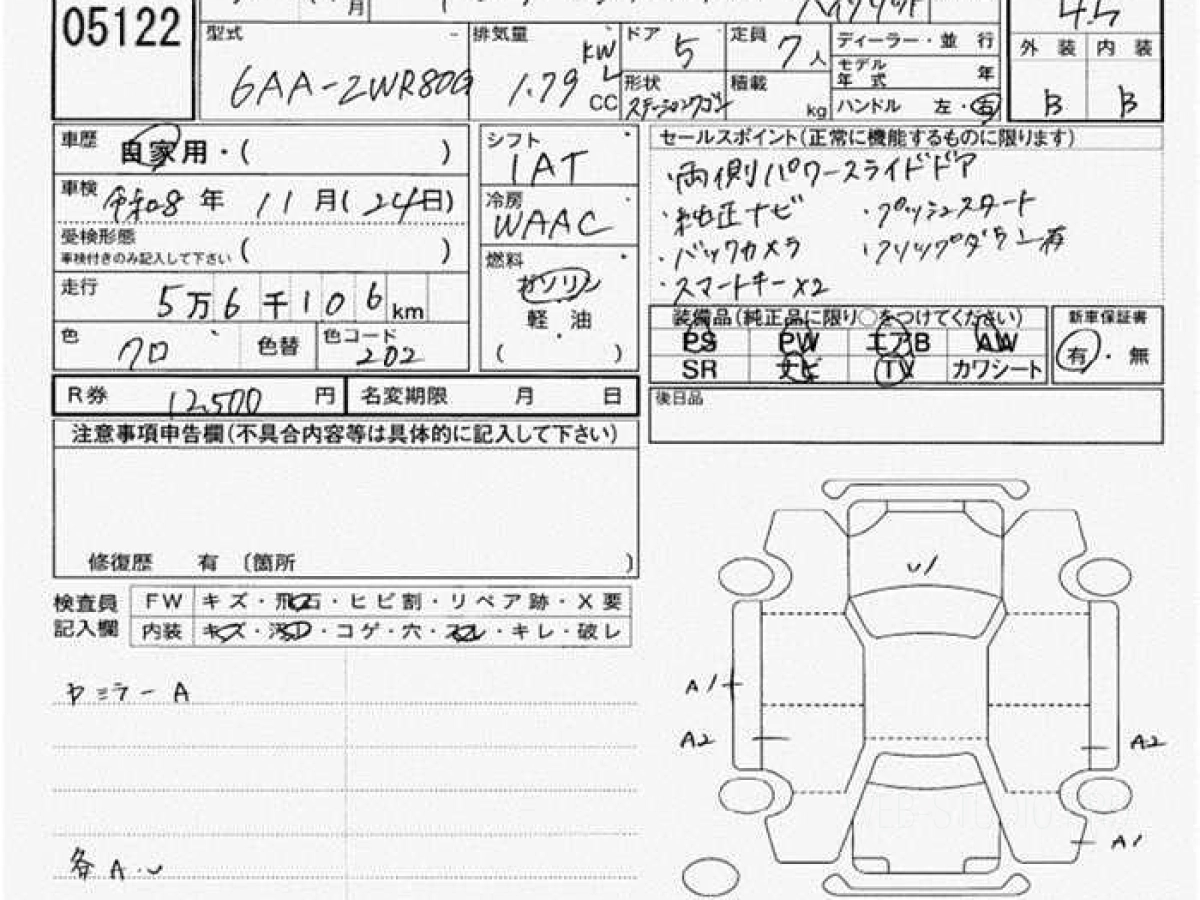 05122
月 ハイブリッド 4.5
型式 6AA-ZWR80G
排気量 1.79 KW L CC
ドア 5
定員 7人
ディーラー・並 行
モデル年式 年
形状 ステーションワゴン
積載 kg
ハンドル 左・右
外装 内装
B B
車歴 自家用・( )
車検 令和8年 11月(24日)
受検形態
車検付きのみ記入して下さい ( )
走行 5万6千106km
色 クロ 色替 色コード 202
シフト
IAT
冷房
WAAC
燃料
ガソリン
軽 油
( )
セールスポイント(正常に機能するものに限ります)
・両側パワースライドドア
・純正ナビ ・プッシュスタート
・バックカメラ ・フリップダウン有
・スマートキー×2
装備品(純正品に限り○をつけてください)
PS PW エアB AW
SR ナビ TV カワシート
新車保証書
有・無
R券 12,500 円 名変期限 月 日
後日品
注意事項申告欄(不具合内容等は具体的に記入して下さい)
修復歴 有 〔箇所 )
検査員記入欄
FW キズ・飛石・ヒビ割・リペア跡・X要
内装 キズ・汚レ・コゲ・穴・スレ・キレ・破レ
ミラーA
各A・U
U1
A1
A2
A2
A1